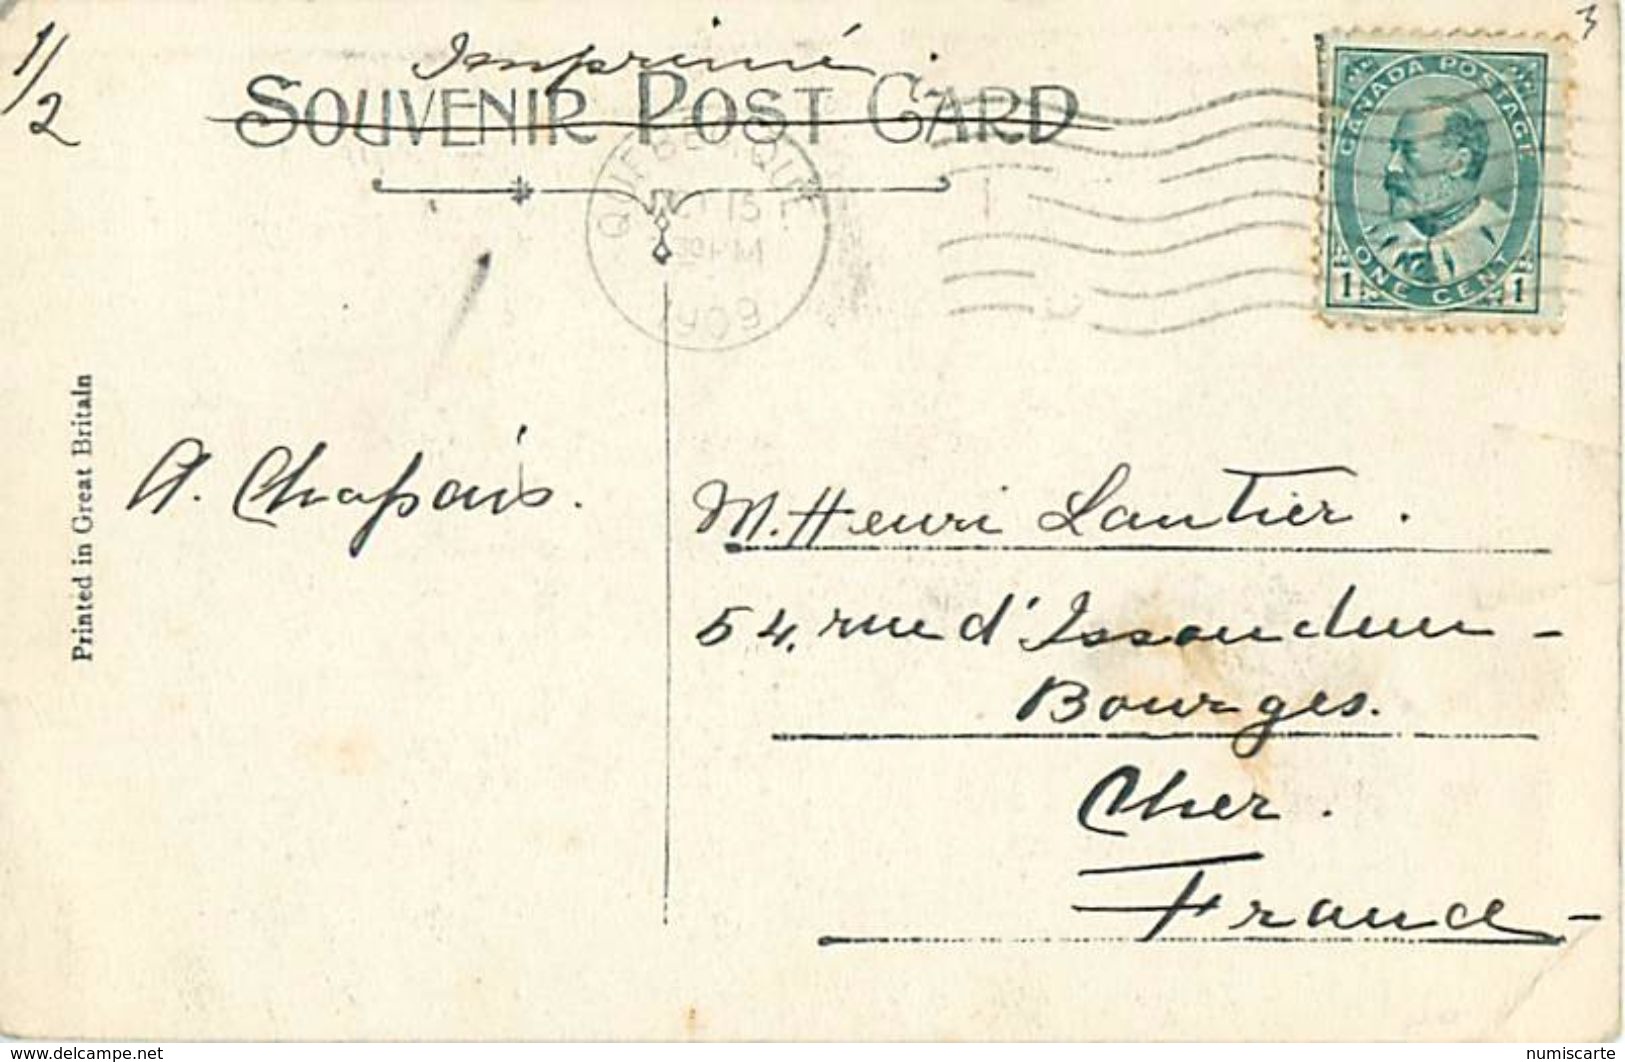 1/2
Imprimé
SOUVENIR POST CARD
3
CANADA POSTAGE
ONE CENT
1 1
QUEBEC, QUE
15
PM
1909
Printed in Great Britain
A. Chapais.
M. Henri Lautier.
54, rue d'Issoudun -
Bourges.
Cher.
France -
www.delcampe.net
numiscarte